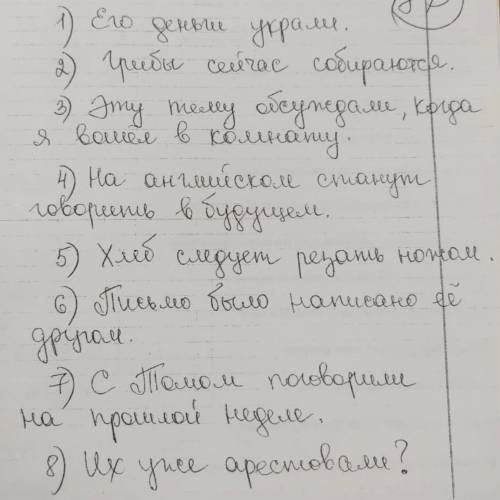 1) Его деньги украли.
2) Грибы сейчас собираются.
3) Эту тему обсуждали, когда
я вошёл в комнату.
4) На английском станут
говорить в будущем.
5) Хлеб следует резать ножом.
6) Письмо было написано её
другом.
7) С Томом поговорили
на прошлой неделе.
8) Их уже арестовали?